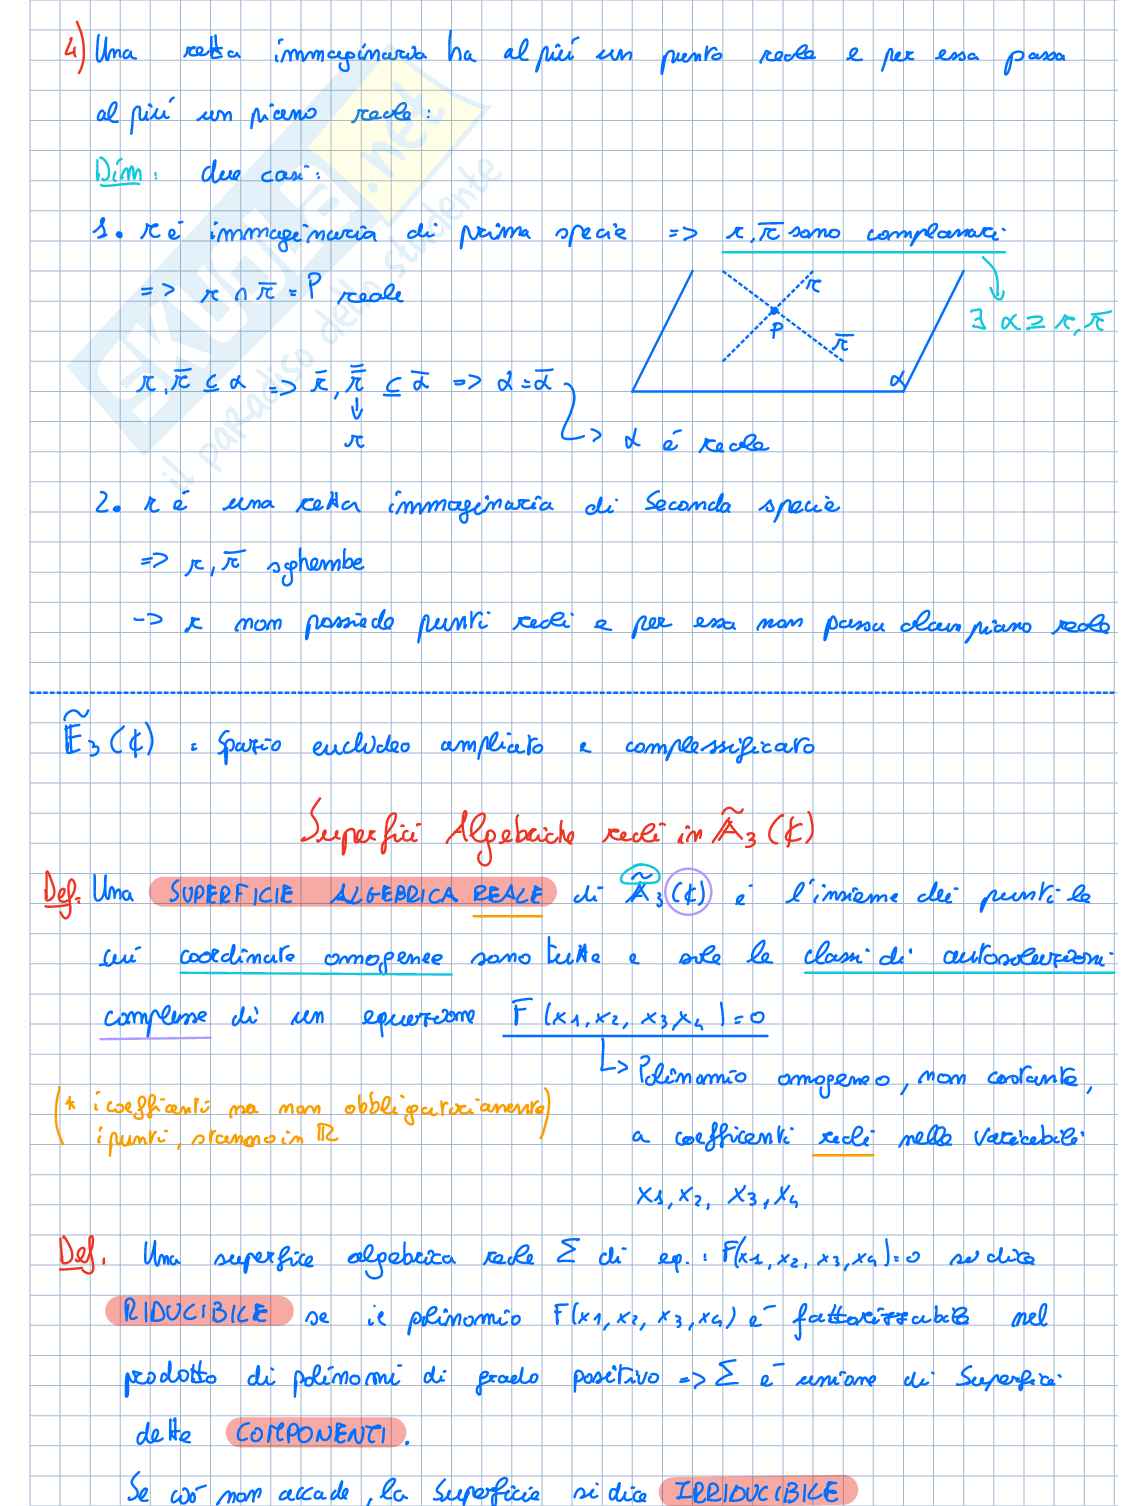 4) Una retta immaginaria ha al più un punto reale e per essa passa
al più un piano reale:
Dim: due casi:
1. r è immaginaria di prima specie => r, r̅ sono complanari
=> r ∩ r̅ = P reale
r
P
r̅
α
∃ α ⊇ r, r̅
r, r̅ ⊆ α => r̅, r̿ ⊆ α̅ => α = α̅
r
α è reale
2. r è una retta immaginaria di seconda specie
=> r, r̅ sghembe
-> r non possiede punti reali e per essa non passa alcun piano reale
Ẽ3 (ℂ) : Spazio euclideo ampliato e complessificato
Superfici Algebriche reali in Ã3 (ℂ)
Def. Una SUPERFICIE ALGEBRICA REALE di Ã3 (ℂ) è l'insieme dei punti le
cui coordinate omogenee sono tutte e sole le classi di autosoluzioni
complesse di un equazione F (x1, x2, x3, x4) = 0
Polinomio omogeneo, non costante,
(* i coefficienti ma non obbligatoriamente
i punti, stanno in ℝ)
a coefficenti reali nelle variabili
x1, x2, x3, x4
Def. Una superfice algebrica reale Σ di eq. : F(x1, x2, x3, x4) = 0 si dice
RIDUCIBILE se il polinomio F(x1, x2, x3, x4) è fattorizzabile nel
prodotto di polinomi di grado positivo => Σ è unione di Superfici
dette COMPONENTI.
Se ciò non accade, la Superficie si dice IRRIDUCIBILE
SKUOLA.net
il paradiso dello studente